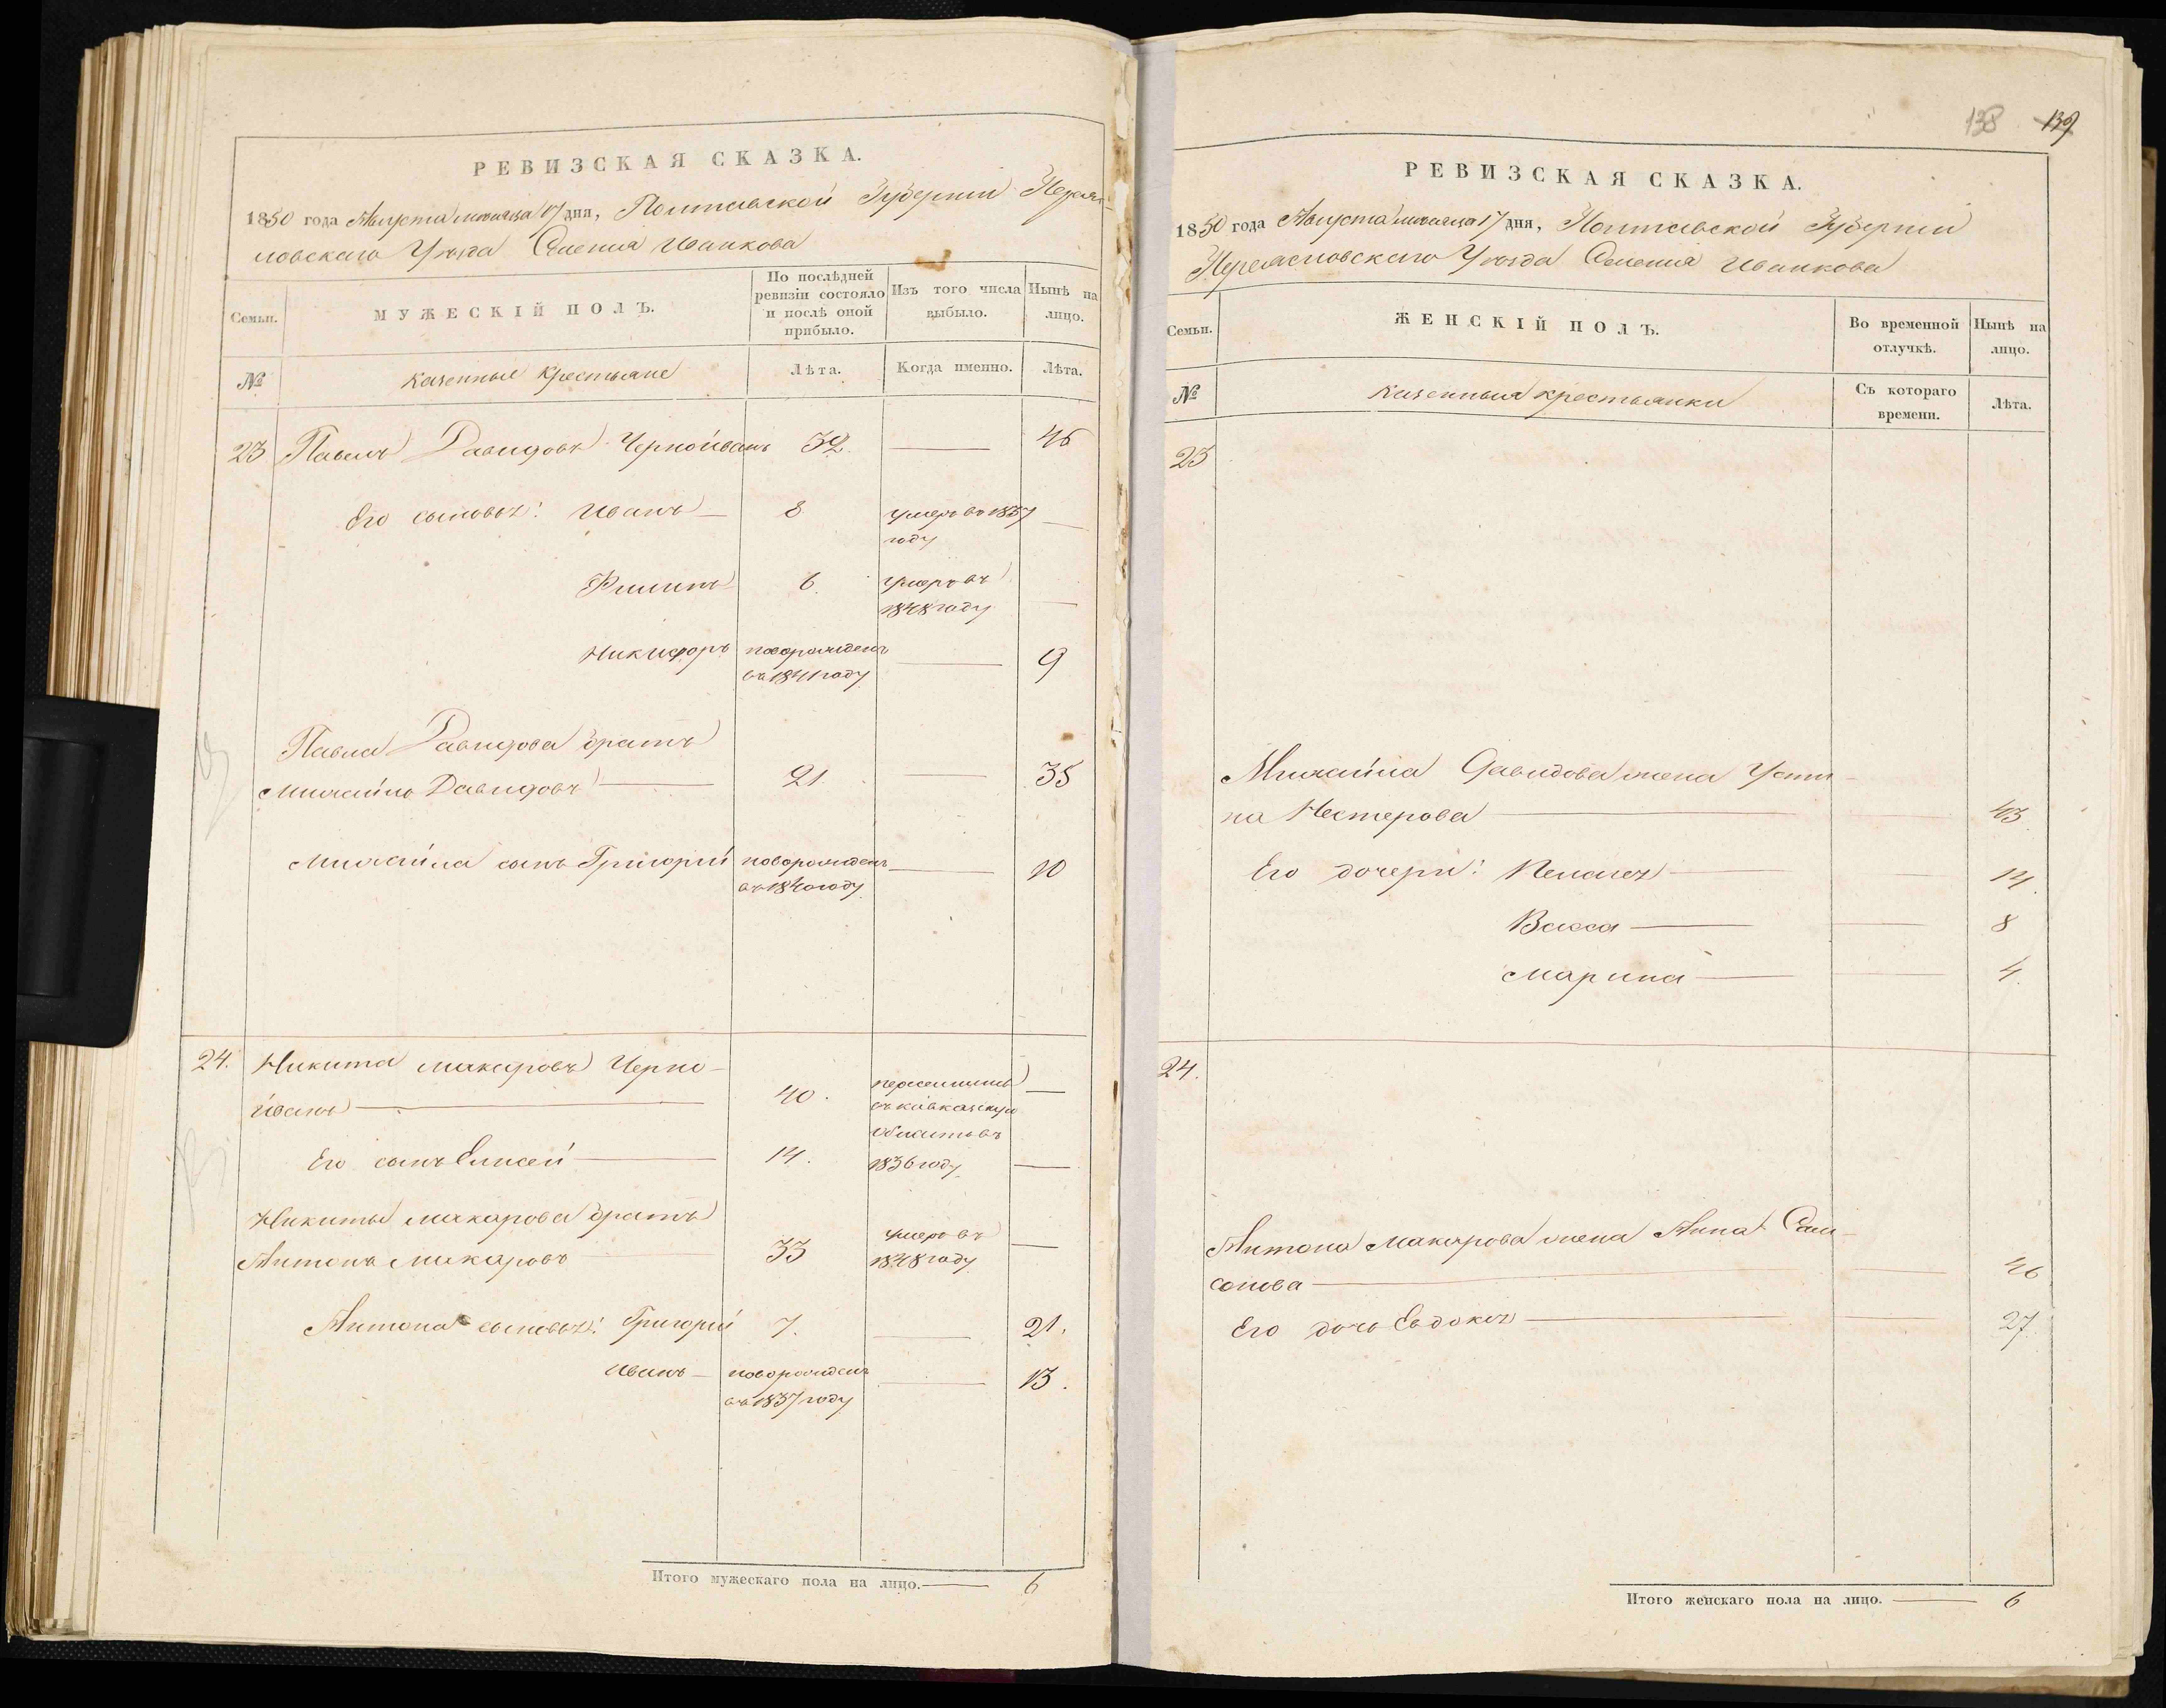 РЕВИЗСКАЯ СКАЗКА.
1850 года Августа месяца 17 дня, Полтавской Губернии Перея-
словскаго Уезда Селения Иванкова
Семьи.
МУЖЕСКІЙ ПОЛЪ.
По послѣдней ревизіи состояло и послѣ оной прибыло.
Изъ того числа выбыло.
Нынѣ на лицо.
№
Казенные Крестьяне
Лѣта.
Когда именно.
Лѣта.
23 Павелъ Давидовъ Чернойванъ 32. 46
Его сыновья: Иванъ 8 умеръ въ 1837
году
Филипъ 6. умеръ въ
1848 году
Никифоръ новорожденъ 9
въ 1841 году
Павла Давидова братъ
Михайло Давидовъ 21. 35
Михайла сынъ Григорій новорожденъ 10
въ 1840 году
24. Никита Макаровъ Черно-
йванъ 40. переселились
въ кавказскую
область въ
Его сынъ Елисей 14. 1836 году
Никиты Макарова братъ
Антонъ Макаровъ 33 умеръ въ
1848 году
Антона сыновья: Григорій 7. 21.
Иванъ новорожденъ 13.
въ 1837 году
Итого мужескаго пола на лицо. 6
138 139
РЕВИЗСКАЯ СКАЗКА.
1850 года Августа месяца 17 дня, Полтавской Губернии
Переясловскаго Уезда Селения Иванкова
Семьи.
ЖЕНСКІЙ ПОЛЪ.
Во временной отлучкѣ.
Нынѣ на лицо.
№
Казенныя крестьянки
Съ котораго времени.
Лѣта.
23
Михайла Давидова жена Усти-
на Нестерова 43
Его дочери: Пелагея 14.
Васса 8
Марина 4.
24.
Антона Макарова жена Анна Сам-
сонова 46
Его дочь Евдокія 27
Итого женскаго пола на лицо. 6